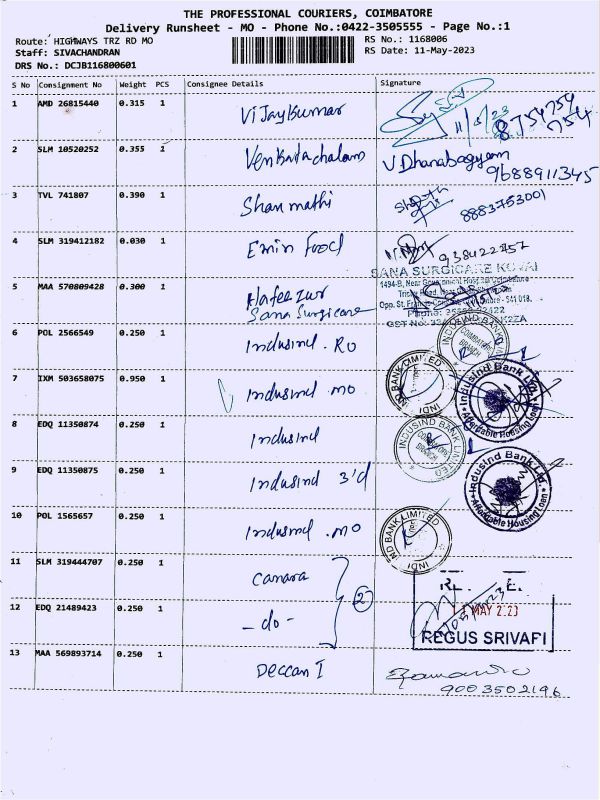 THE PROFESSIONAL COURIERS, COIMBATORE
Delivery Runsheet - MO - Phone No.:0422-3505555 - Page No.:1
Route: HIGHWAYS TRZ RD MO
RS No.: 1168006
Staff: SIVACHANDRAN
RS Date: 11-May-2023
DRS No.: DCJB116800601
S No Consignment No Weight PCS Consignee Details Signature
1 AMD 26815440 0.315 1 Vijaykumar 11/5/23 8754754 754
2 SLM 10520252 0.355 1 Venkatachalam V Dhanabagyam 9688911345
3 TVL 741807 0.390 1 Shanmathi 8883753001
4 SLM 319412182 0.030 1 Emin Food
SANA SURGICARE KOVAI
5 MAA 570809428 0.300 1 Hafeezur
Sana Surgicare
6 POL 2566549 0.250 1 Indusind . RO
COIMBATORE BRANCH
7 IXM 503658075 0.950 1 Indusind . MO
IND BANK LIMITED INDI
IndusInd Bank Ltd. Affordable Housing Loan
8 EDQ 11350874 0.250 1 Indusind
INDUSIND BANK LTD COIMBATORE BRANCH
9 EDQ 11350875 0.250 1 Indusind 3'd
IndusInd Bank Ltd. Affordable Housing Loan
10 POL 1565657 0.250 1 Indusind . MO
IND BANK LIMITED INDI
11 SLM 319444707 0.250 1 Canara
12 EDQ 21489423 0.250 1 -do- 2
11 MAY 2023
REGUS SRIVARI
13 MAA 569893714 0.250 1 Deccan I
9003502196